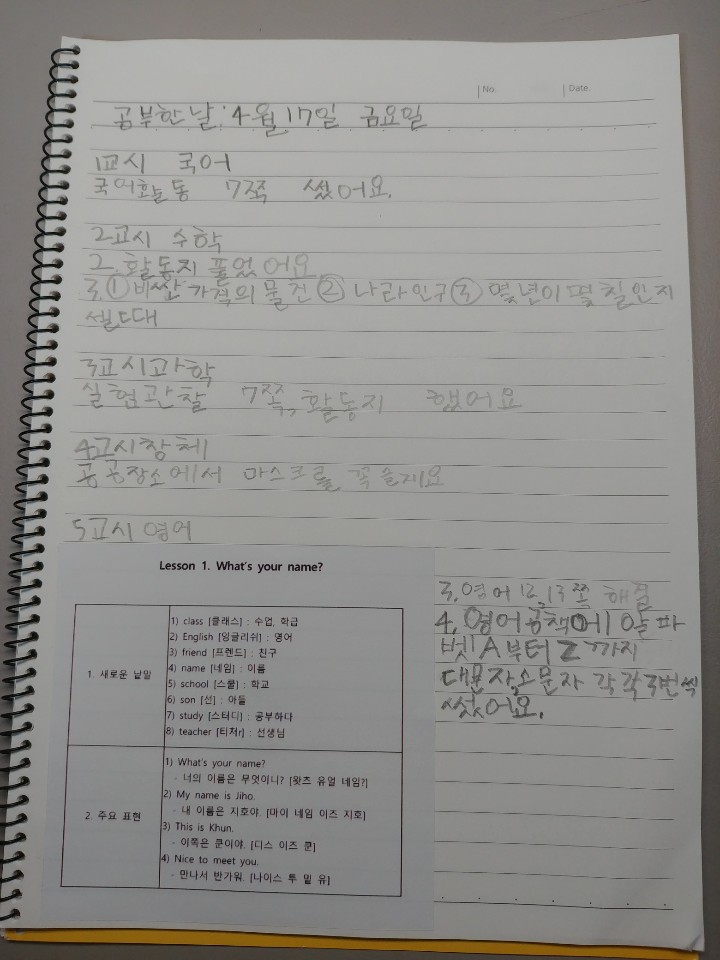 No.
Date
공부한날:4월17일 금요일
1교시 국어
국어활동 7쪽 썼어요.
2교시 수학
2.활동지 풀었어요
3.①비싼 가격의 물건 ② 나라인구 ③ 몇년이 몇 칠인지
셀때
3교시과학
실험관찰 7쪽,활동지 했어요
4교시창체
공공장소에서 마스크를 꼭 쓸게요
5교시 영어
Lesson 1. What's your name?
1. 새로운 낱말
1) class [클래스] : 수업, 학급
2) English [잉글리쉬] : 영어
3) friend [프렌드] : 친구
4) name [네임] : 이름
5) school [스쿨] : 학교
6) son [선] : 아들
7) study [스터디] : 공부하다
8) teacher [티처r] : 선생님
2. 주요 표현
1) What's your name?
- 너의 이름은 무엇이니? [왓츠 유얼 네임?]
2) My name is Jiho.
- 내 이름은 지호야. [마이 네임 이즈 지호]
3) This is Khun.
- 이쪽은 쿤이야. [디스 이즈 쿤]
4) Nice to meet you.
- 만나서 반가워. [나이스 투 밑 유]
3.영어 12,13쪽 해결
4.영어공책에 알파
벳 A부터 Z까지
대문자,소문자 각각 3번씩
썼어요.